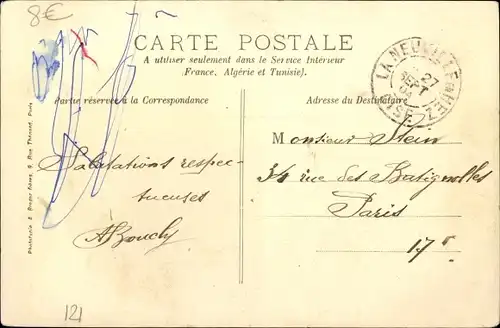 8€
CARTE POSTALE
A utiliser seulement dans le Service Intérieur
(France, Algérie et Tunisie).
Partie réservée à la Correspondance
Adresse du Destinataire
LA NEUVILLE EN HEZ
27
SEPT
OISE
Salutations respec-
tueuses
ABouchy
Monsieur Stein
34 rue des Batignolles
Paris
17e
121